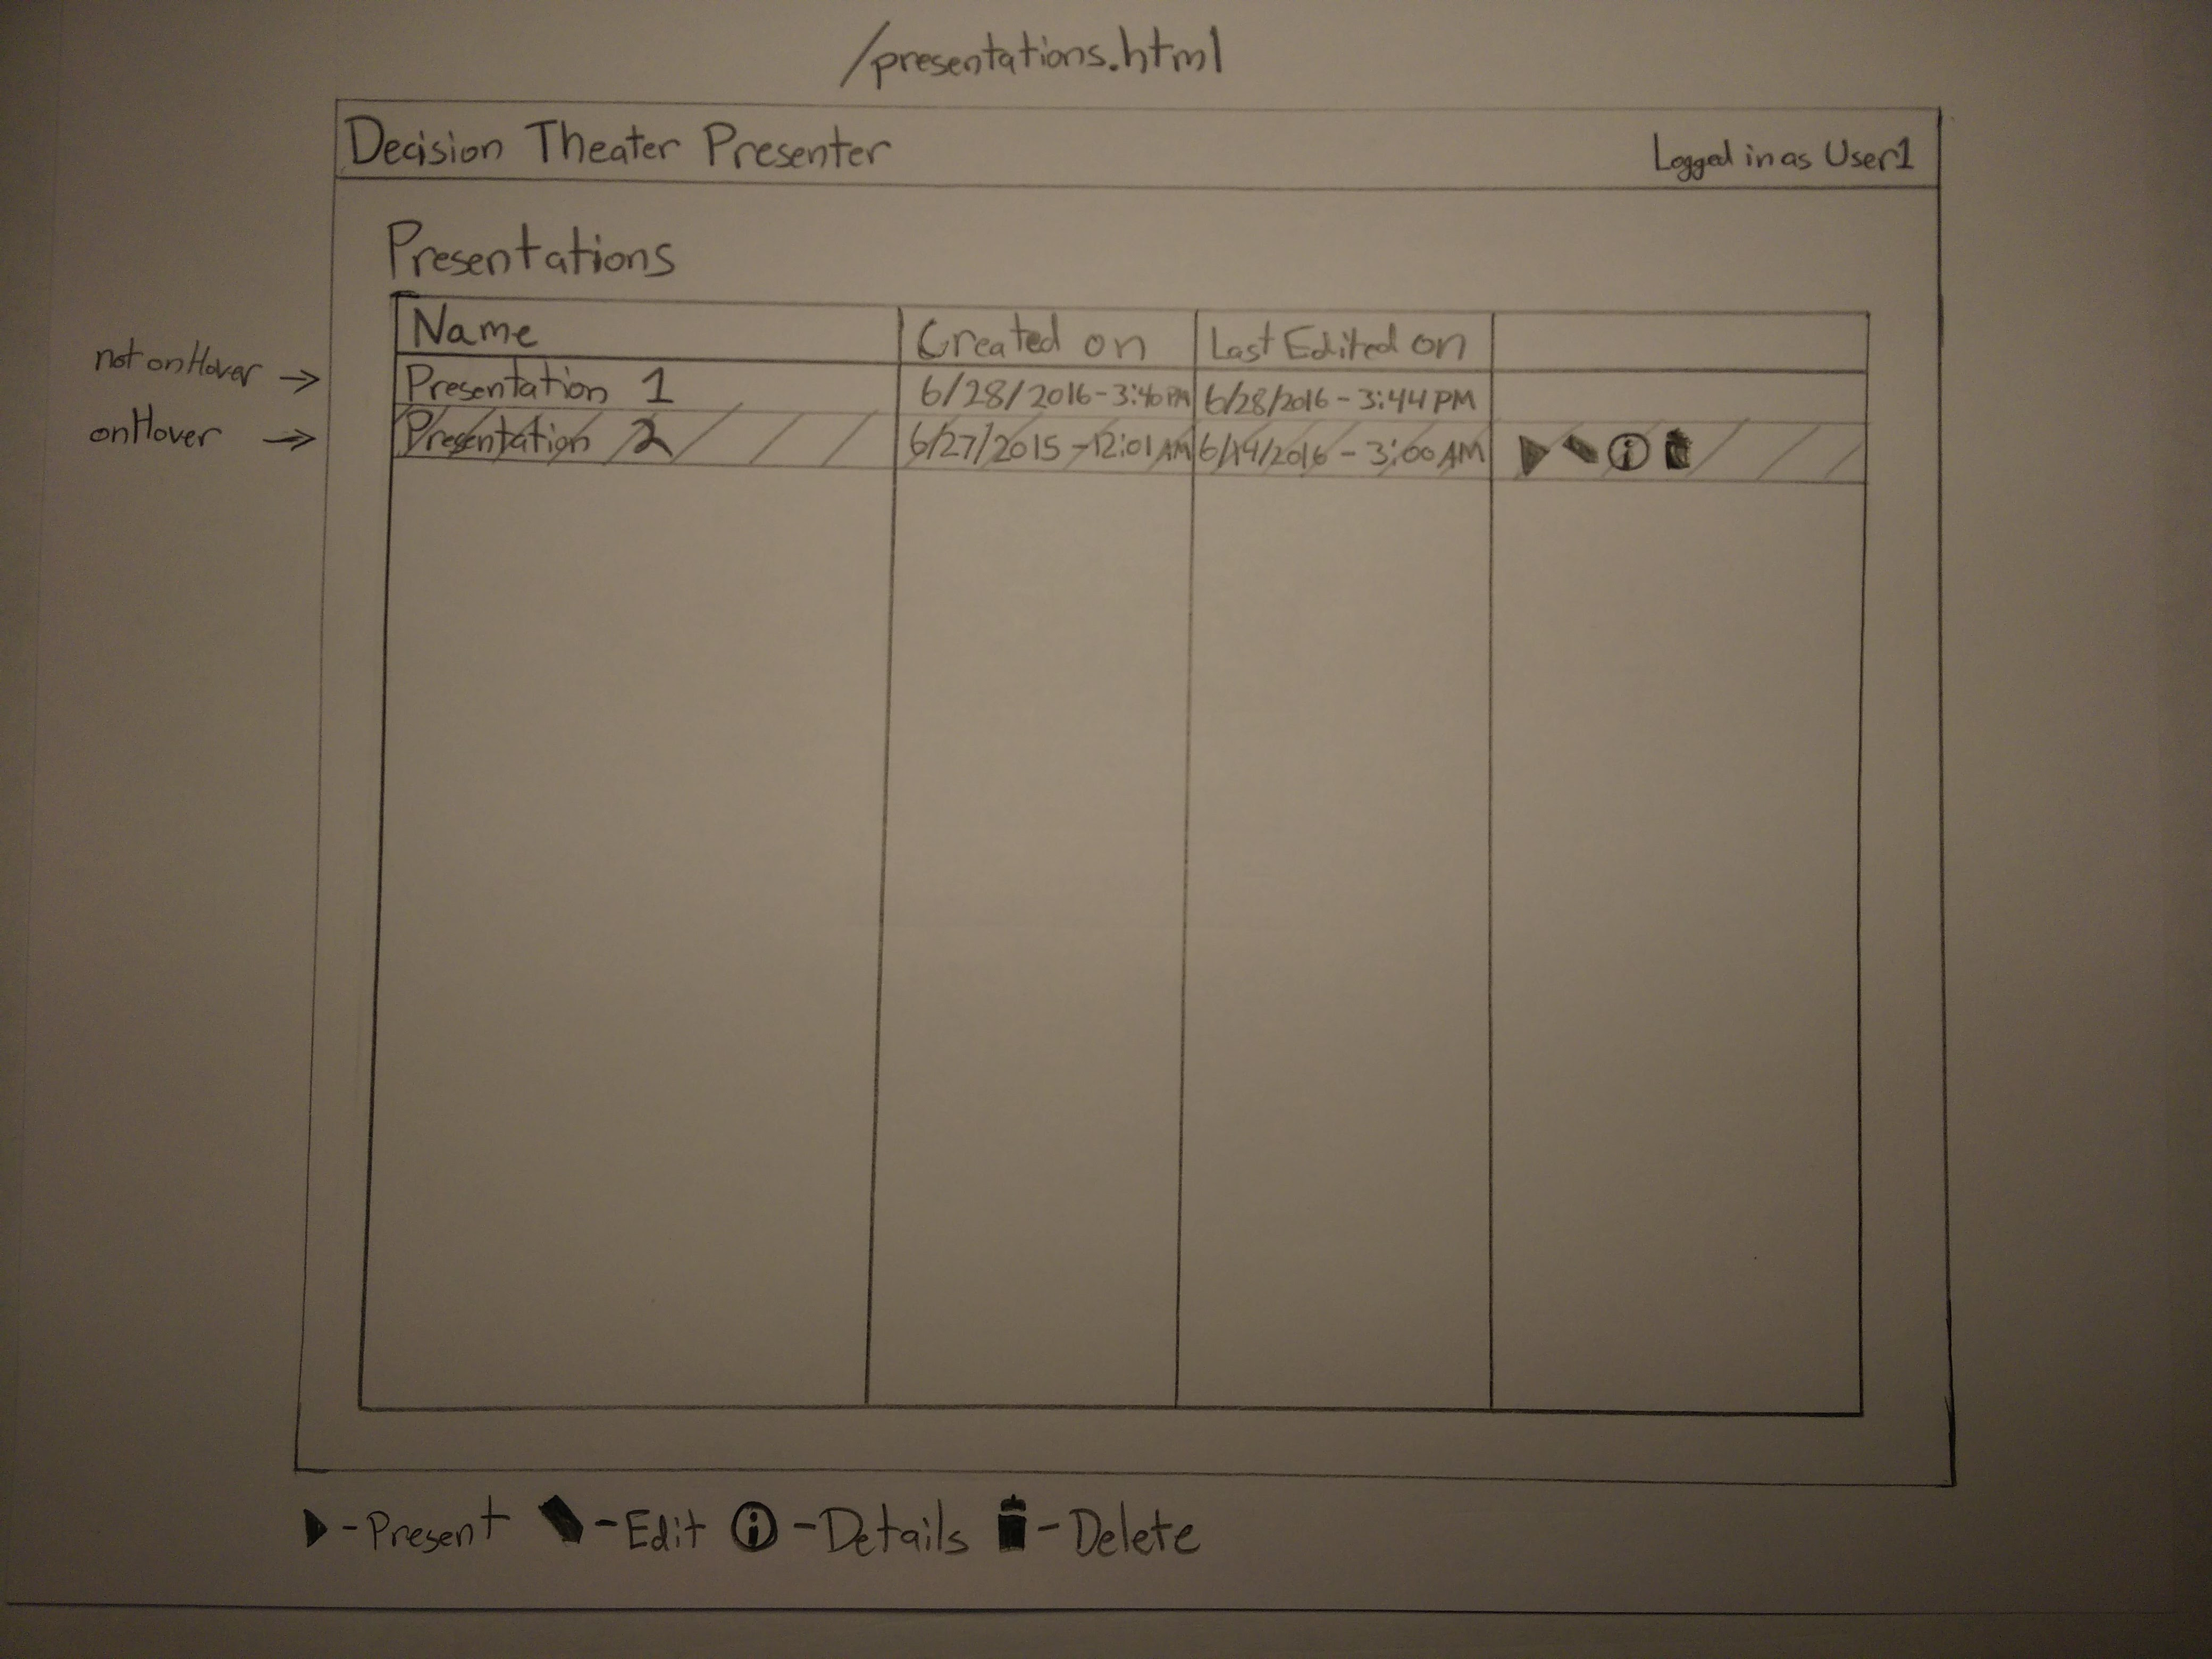 /presentations.html
Decision Theater Presenter Logged in as User1
Presentations
Name Created on Last Edited on
not onHover → Presentation 1 6/28/2016-3:40PM 6/28/2016-3:44PM
onHover → Presentation 2 6/27/2015-12:01AM 6/14/2016-3:00AM
-Present -Edit i -Details -Delete